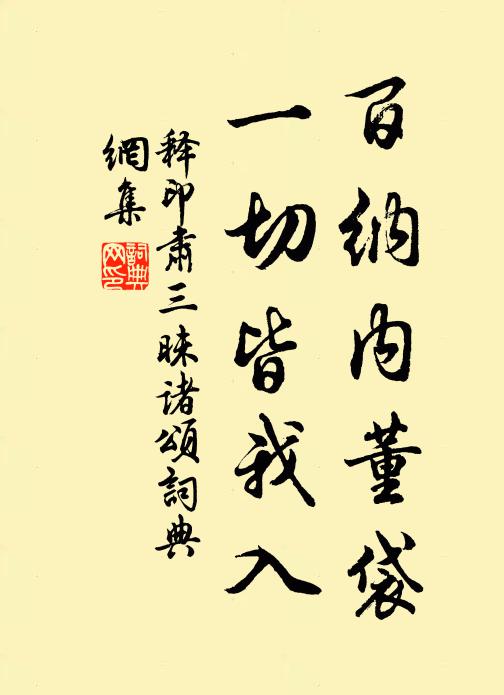 百纳内董袋
一切皆我入
释印肃三昧诸颂詞典
網集
詞典
网印